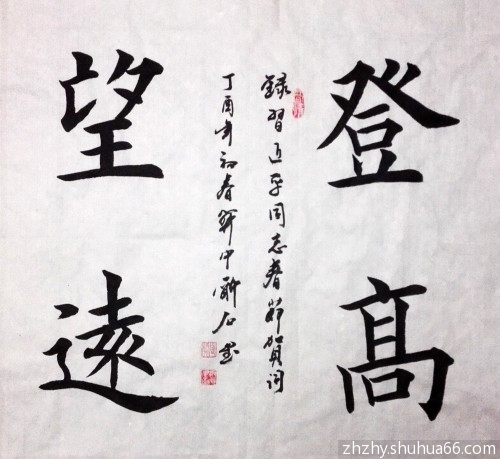 登高
望遠
錄習近平同志春節賀詞
丁酉年初春
zhzhy.shuhua66.com